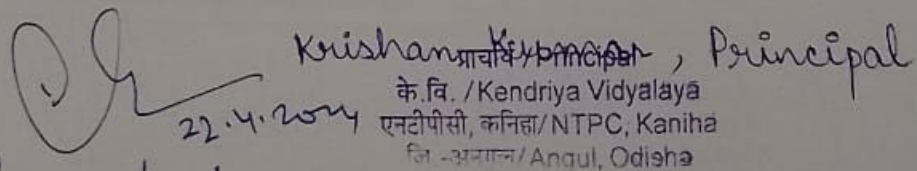 Krishan प्राचार्य/Principal , Principal
के.वि. /Kendriya Vidyalaya
22.4.2024 एनटीपीसी, कनिहा/NTPC, Kaniha
जि.-अनगुल/Angul, Odisha